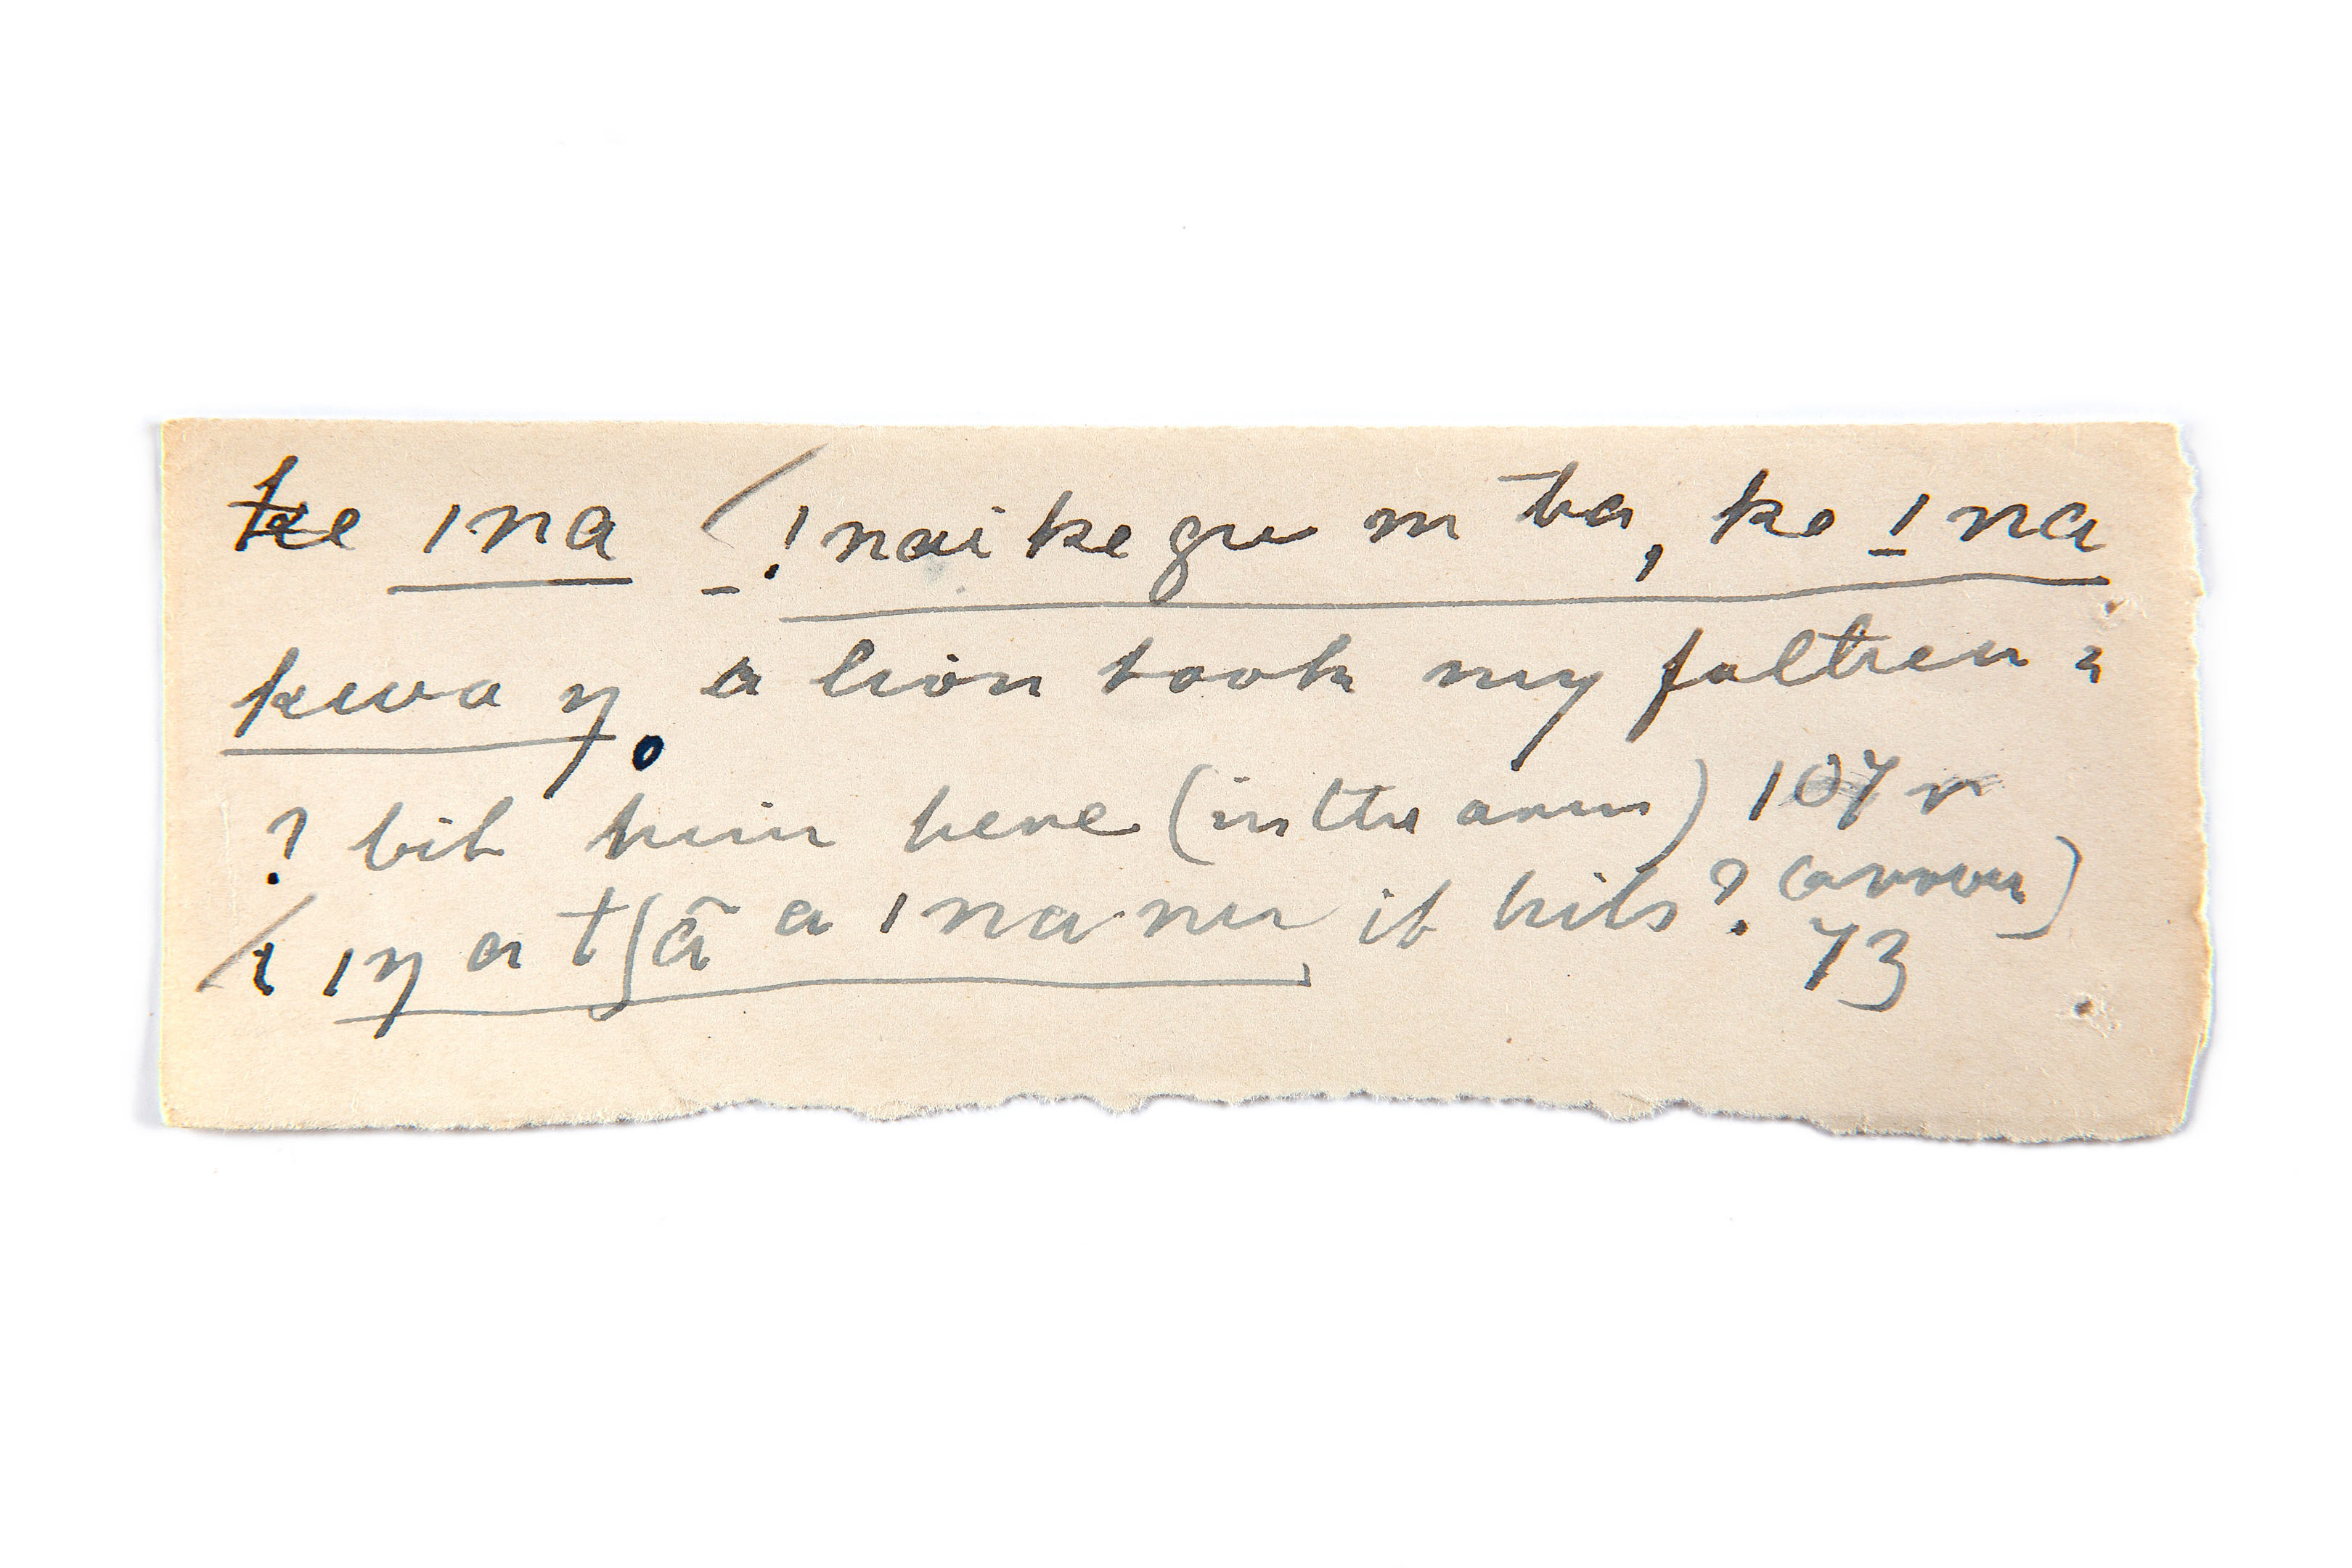 ke ǀna ǃnaikegu m ba, ke ǀna
kwa ŋ. a lion took my father;
? bit him here (in the arm) 107 r
ǀŋ a tʃã a ǀna nu it hits? (arrow)
73